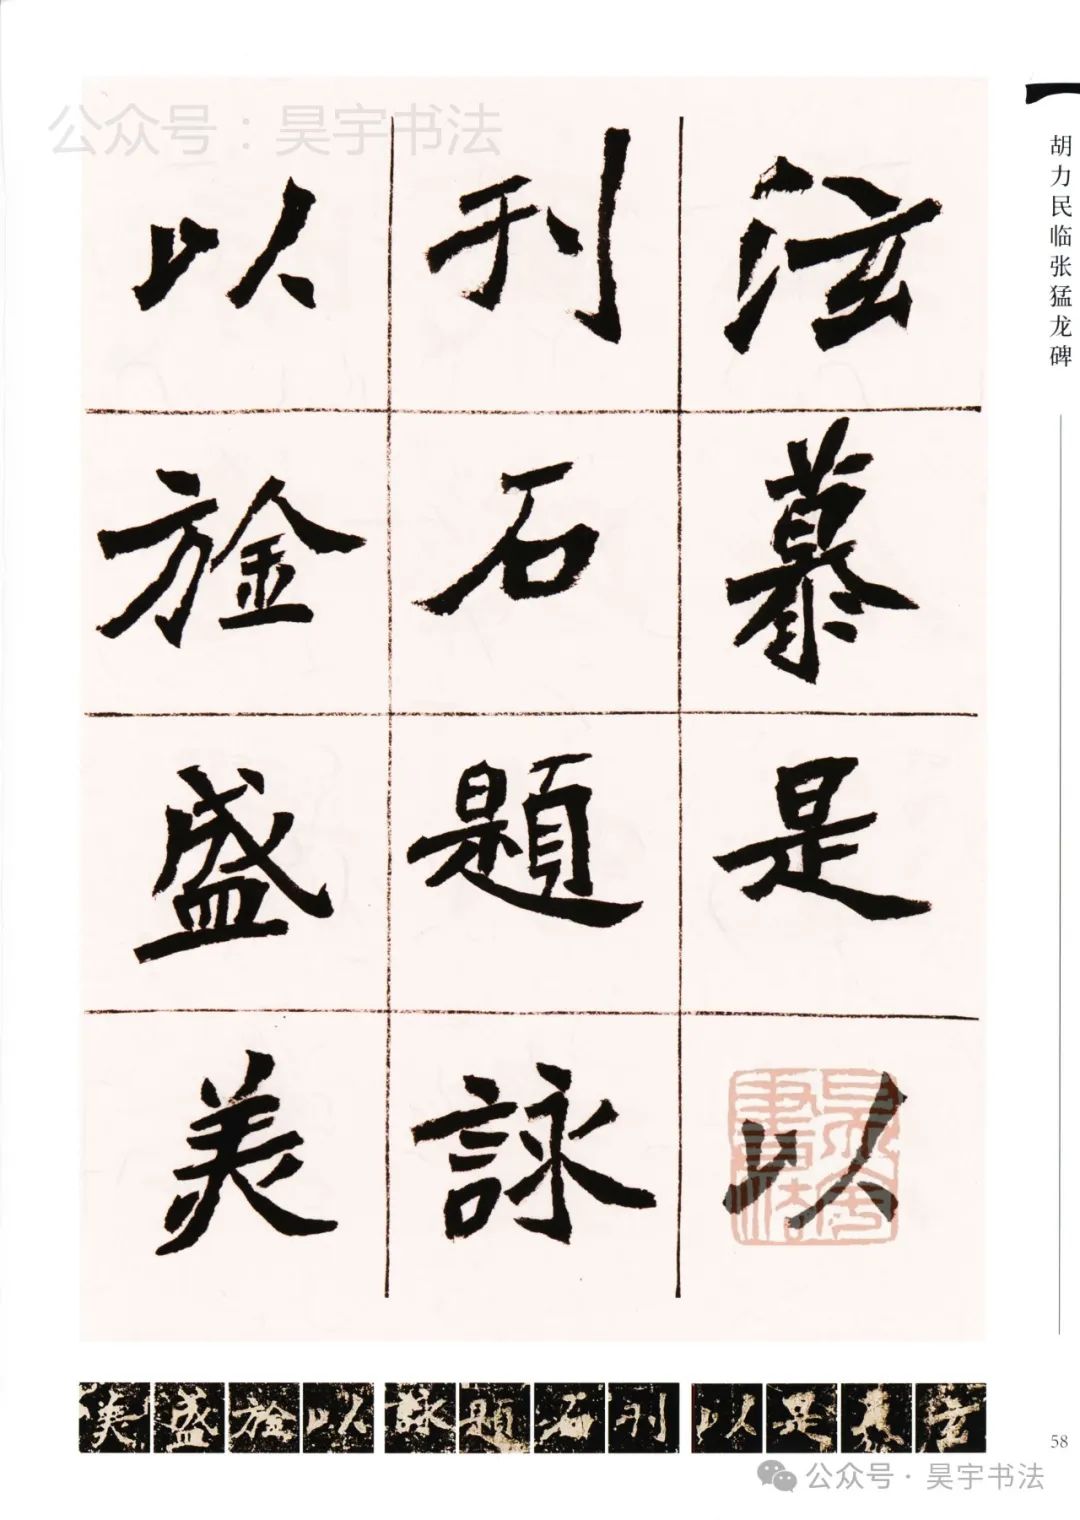 公众号：昊宇书法
胡力民临张猛龙碑
泫慕是以
刊石題詠
以旌盛美
昊宇
書法
泫慕是以
刊石題詠
以旌盛美
58
公众号·昊宇书法